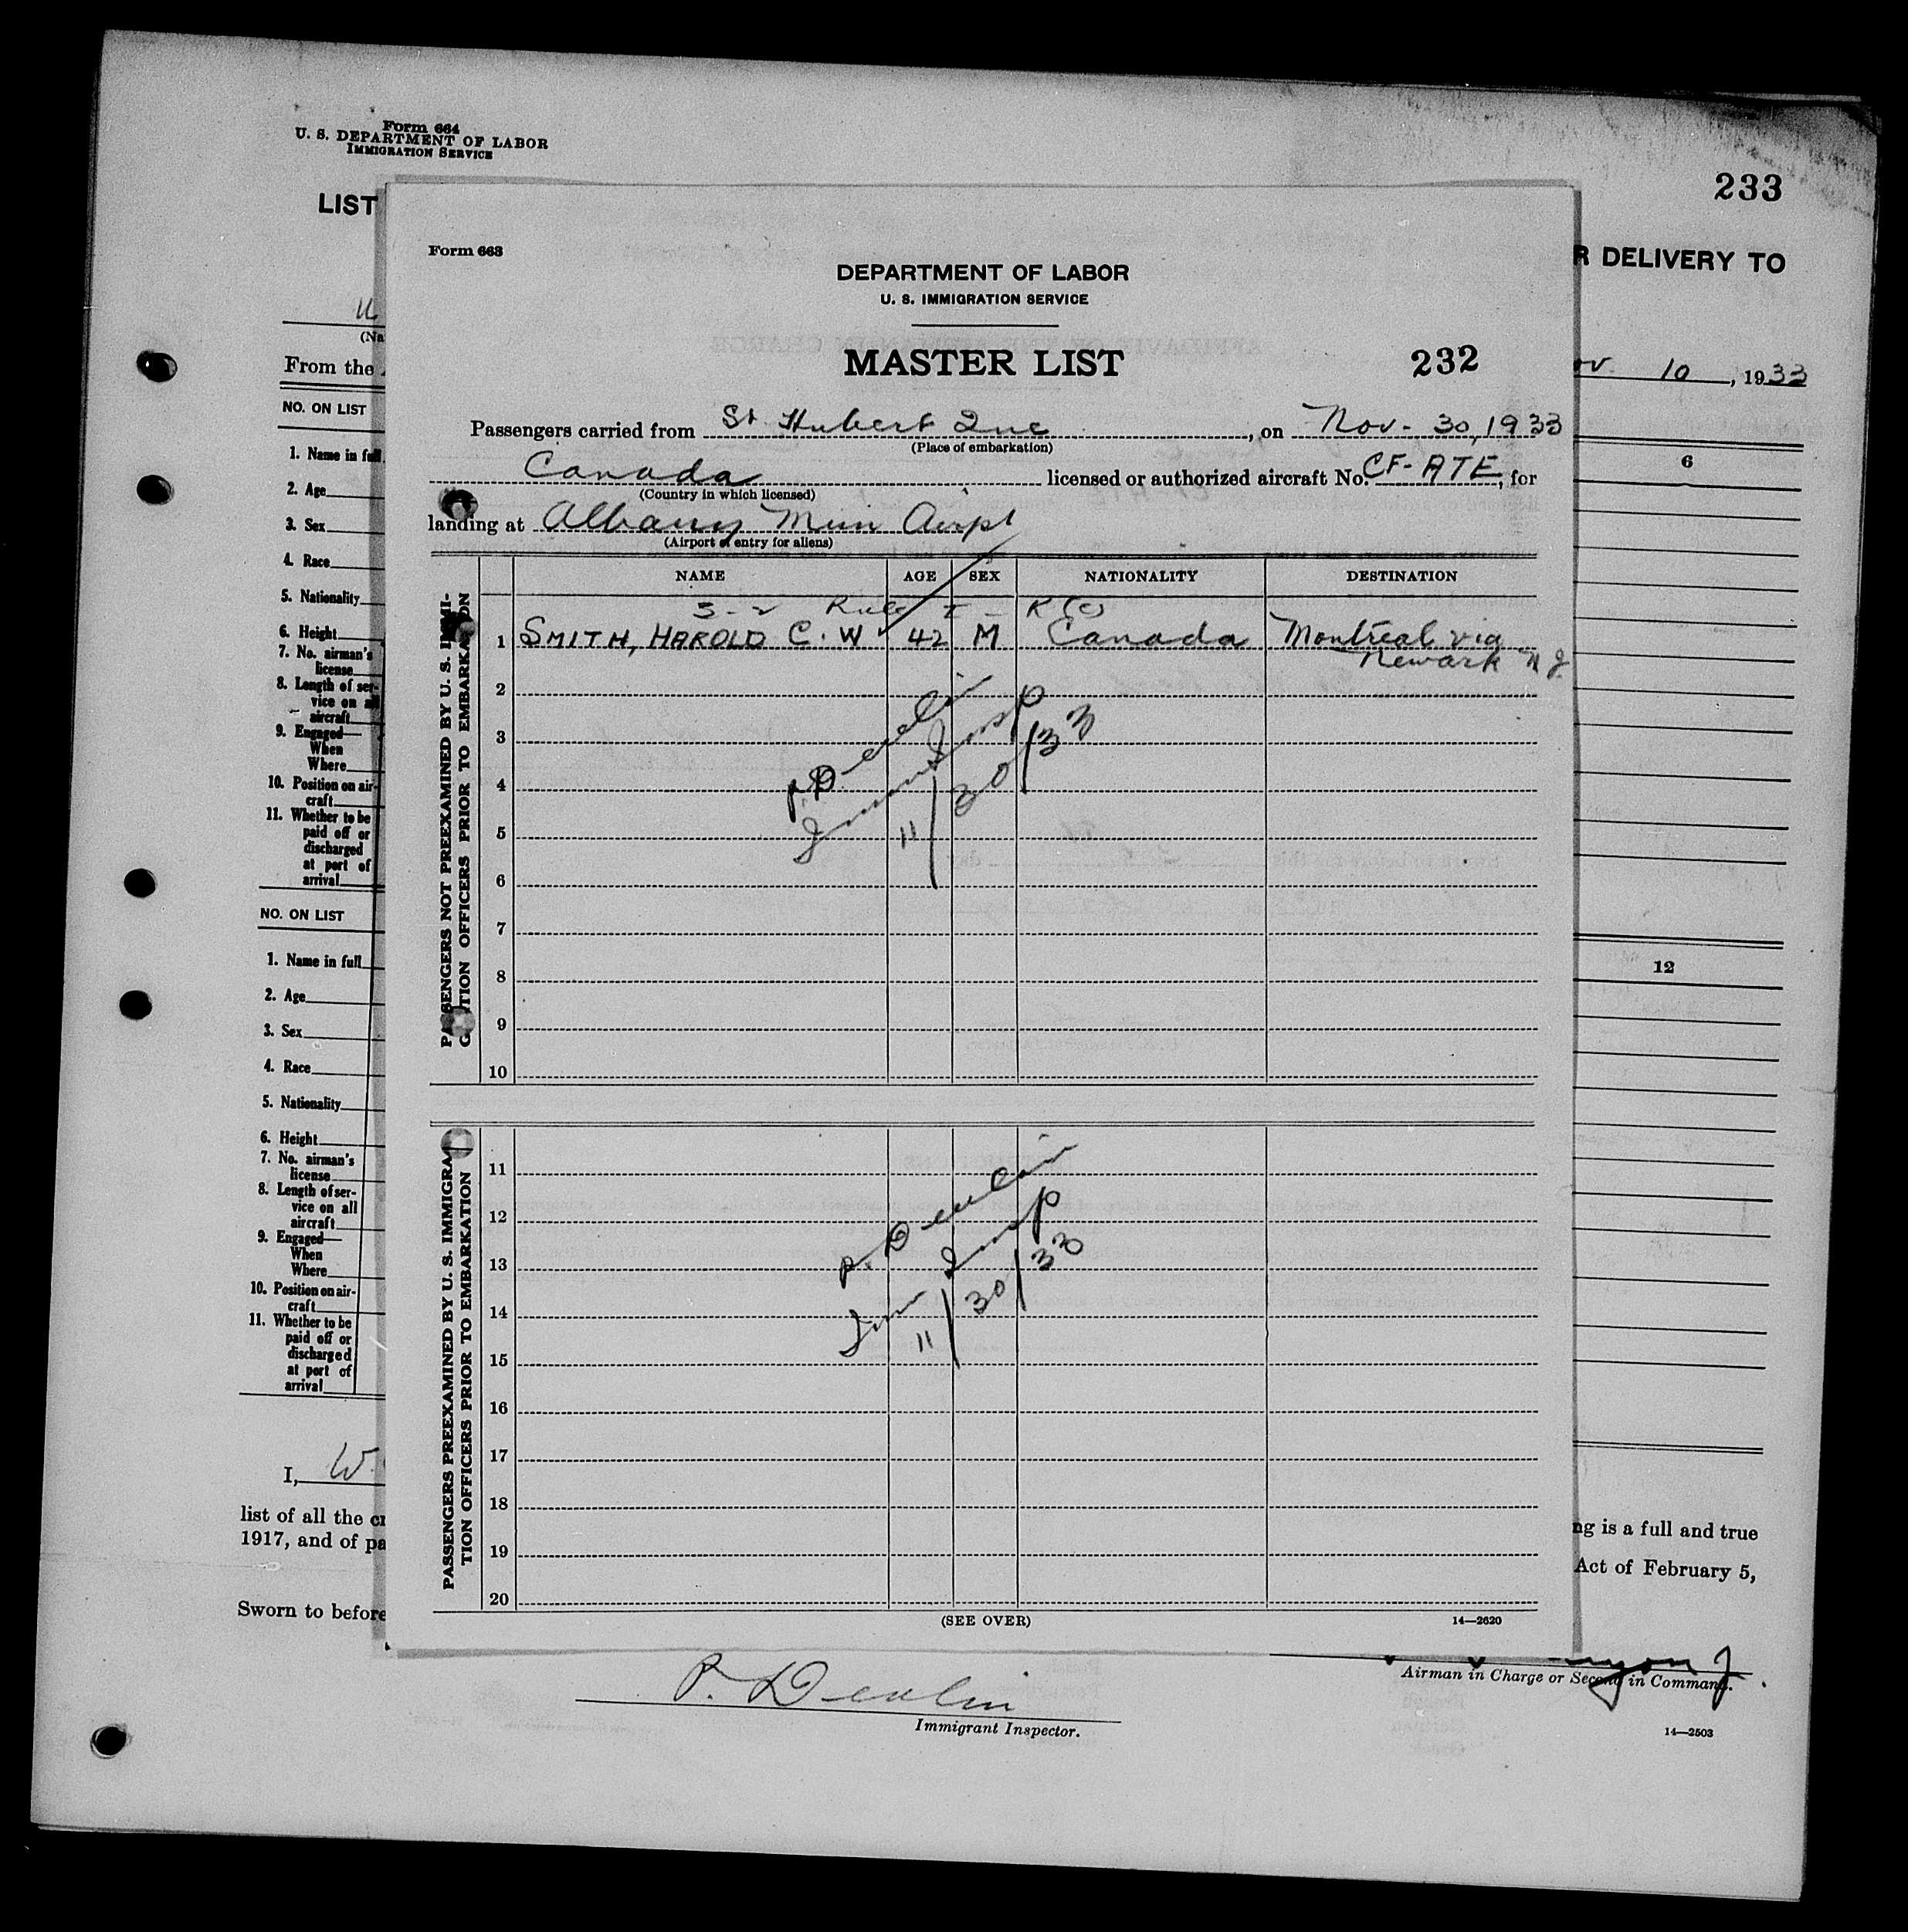 Form 664
U. S. DEPARTMENT OF LABOR
IMMIGRATION SERVICE
233
LIST
R DELIVERY TO
(Na
From the
ov. 10, 1933
NO. ON LIST
6
1. Name in full
2. Age
3. Sex
4. Race
5. Nationality
6. Height
7. No. airman's
license
8. Length of ser-
vice on all
aircraft
9. Engaged—
When
Where
10. Position on air-
craft
11. Whether to be
paid off or
discharged
at port of
arrival
NO. ON LIST
12
1. Name in full
2. Age
3. Sex
4. Race
5. Nationality
6. Height
7. No. airman's
license
8. Length of ser-
vice on all
aircraft
9. Engaged—
When
Where
10. Position on air-
craft
11. Whether to be
paid off or
discharged
at port of
arrival
I, W.
list of all the cr
ng is a full and true
1917, and of pa
Act of February 5,
Sworn to before
Form 663
DEPARTMENT OF LABOR
U. S. IMMIGRATION SERVICE
MASTER LIST
232
Passengers carried from St Hubert Que, on Nov. 30, 1933
(Place of embarkation)
Canada licensed or authorized aircraft No. CF-ATE, for
(Country in which licensed)
landing at Albany Mun Airpt
(Airport of entry for aliens)
NAME AGE SEX NATIONALITY DESTINATION
3-2 Rule I-K(c)
1 SMITH, HAROLD C. W 42 M Canada Montreal via
Newark N J.
2
3
4
5
6
7
8
9
10
P. Devlin
Imm Insp
11/30/33
PASSENGERS NOT PREEXAMINED BY U. S. IMMI-
GRATION OFFICERS PRIOR TO EMBARKATION
11
12
13
14
15
16
17
18
19
20
P. Devlin
Imm Insp
11/30/33
PASSENGERS PREEXAMINED BY U. S. IMMIGRA-
TION OFFICERS PRIOR TO EMBARKATION
(SEE OVER)
14—2620
P. Devlin
Immigrant Inspector.
Airman in Charge or Second in Command.
14—2503